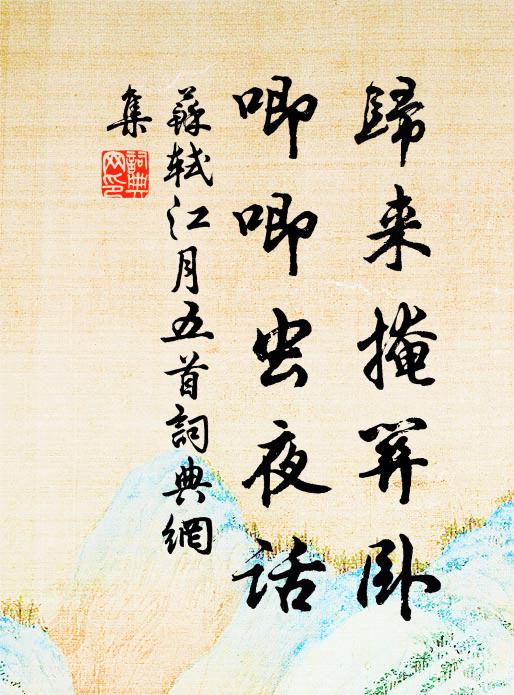 歸来掩關卧
唧唧虫夜話
蘇軾江月五首詞典網
集
詞典網印